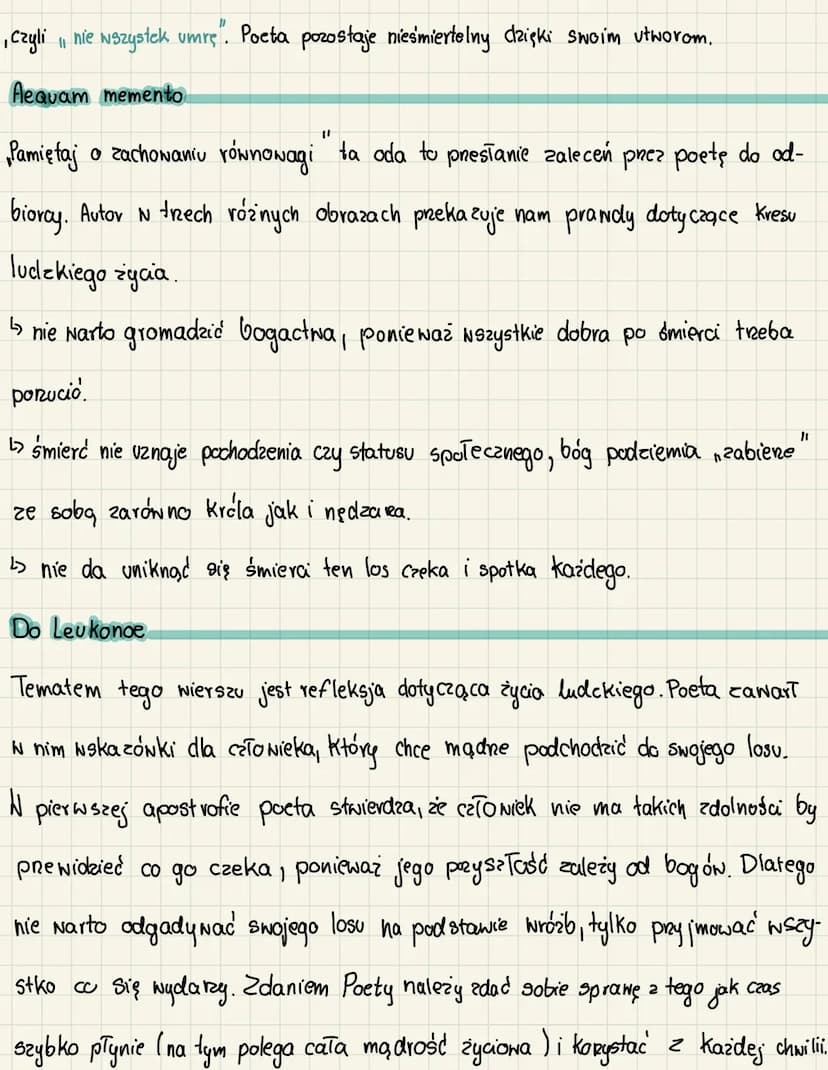 , czyli „ nie wszystek umrę". Poeta pozostaje nieśmiertelny dzięki swoim utworom.
Aequam memento
„Pamiętaj o zachowaniu równowagi" ta oda to przesłanie zaleceń przez poetę do od-
biorcy. Autor w trzech różnych obrazach przekazuje nam prawdy dotyczące kresu
ludzkiego życia.
↳ nie warto gromadzić bogactwa, ponieważ wszystkie dobra po śmierci trzeba
porzucić.
↳ śmierć nie uznaje pochodzenia czy statusu społecznego, bóg podziemia „zabierze"
ze sobą zarówno króla jak i nędzarza.
↳ nie da uniknąć się śmierci ten los czeka i spotka każdego.
Do Leukonoe
Tematem tego wierszu jest refleksja dotycząca życia ludzkiego. Poeta zawarł
w nim wskazówki dla człowieka, który chce mądrze podchodzić do swojego losu.
W pierwszej apostrofie poeta stwierdza, że człowiek nie ma takich zdolności by
przewidzieć co go czeka, ponieważ jego przyszłość zależy od bogów. Dlatego
nie warto odgadywać swojego losu na podstawie wróżb, tylko przyjmować wszy-
stko co się wydarzy. Zdaniem Poety należy zdać sobie sprawę z tego jak czas
szybko płynie (na tym polega cała mądrość życiowa) i korzystać z każdej chwili.